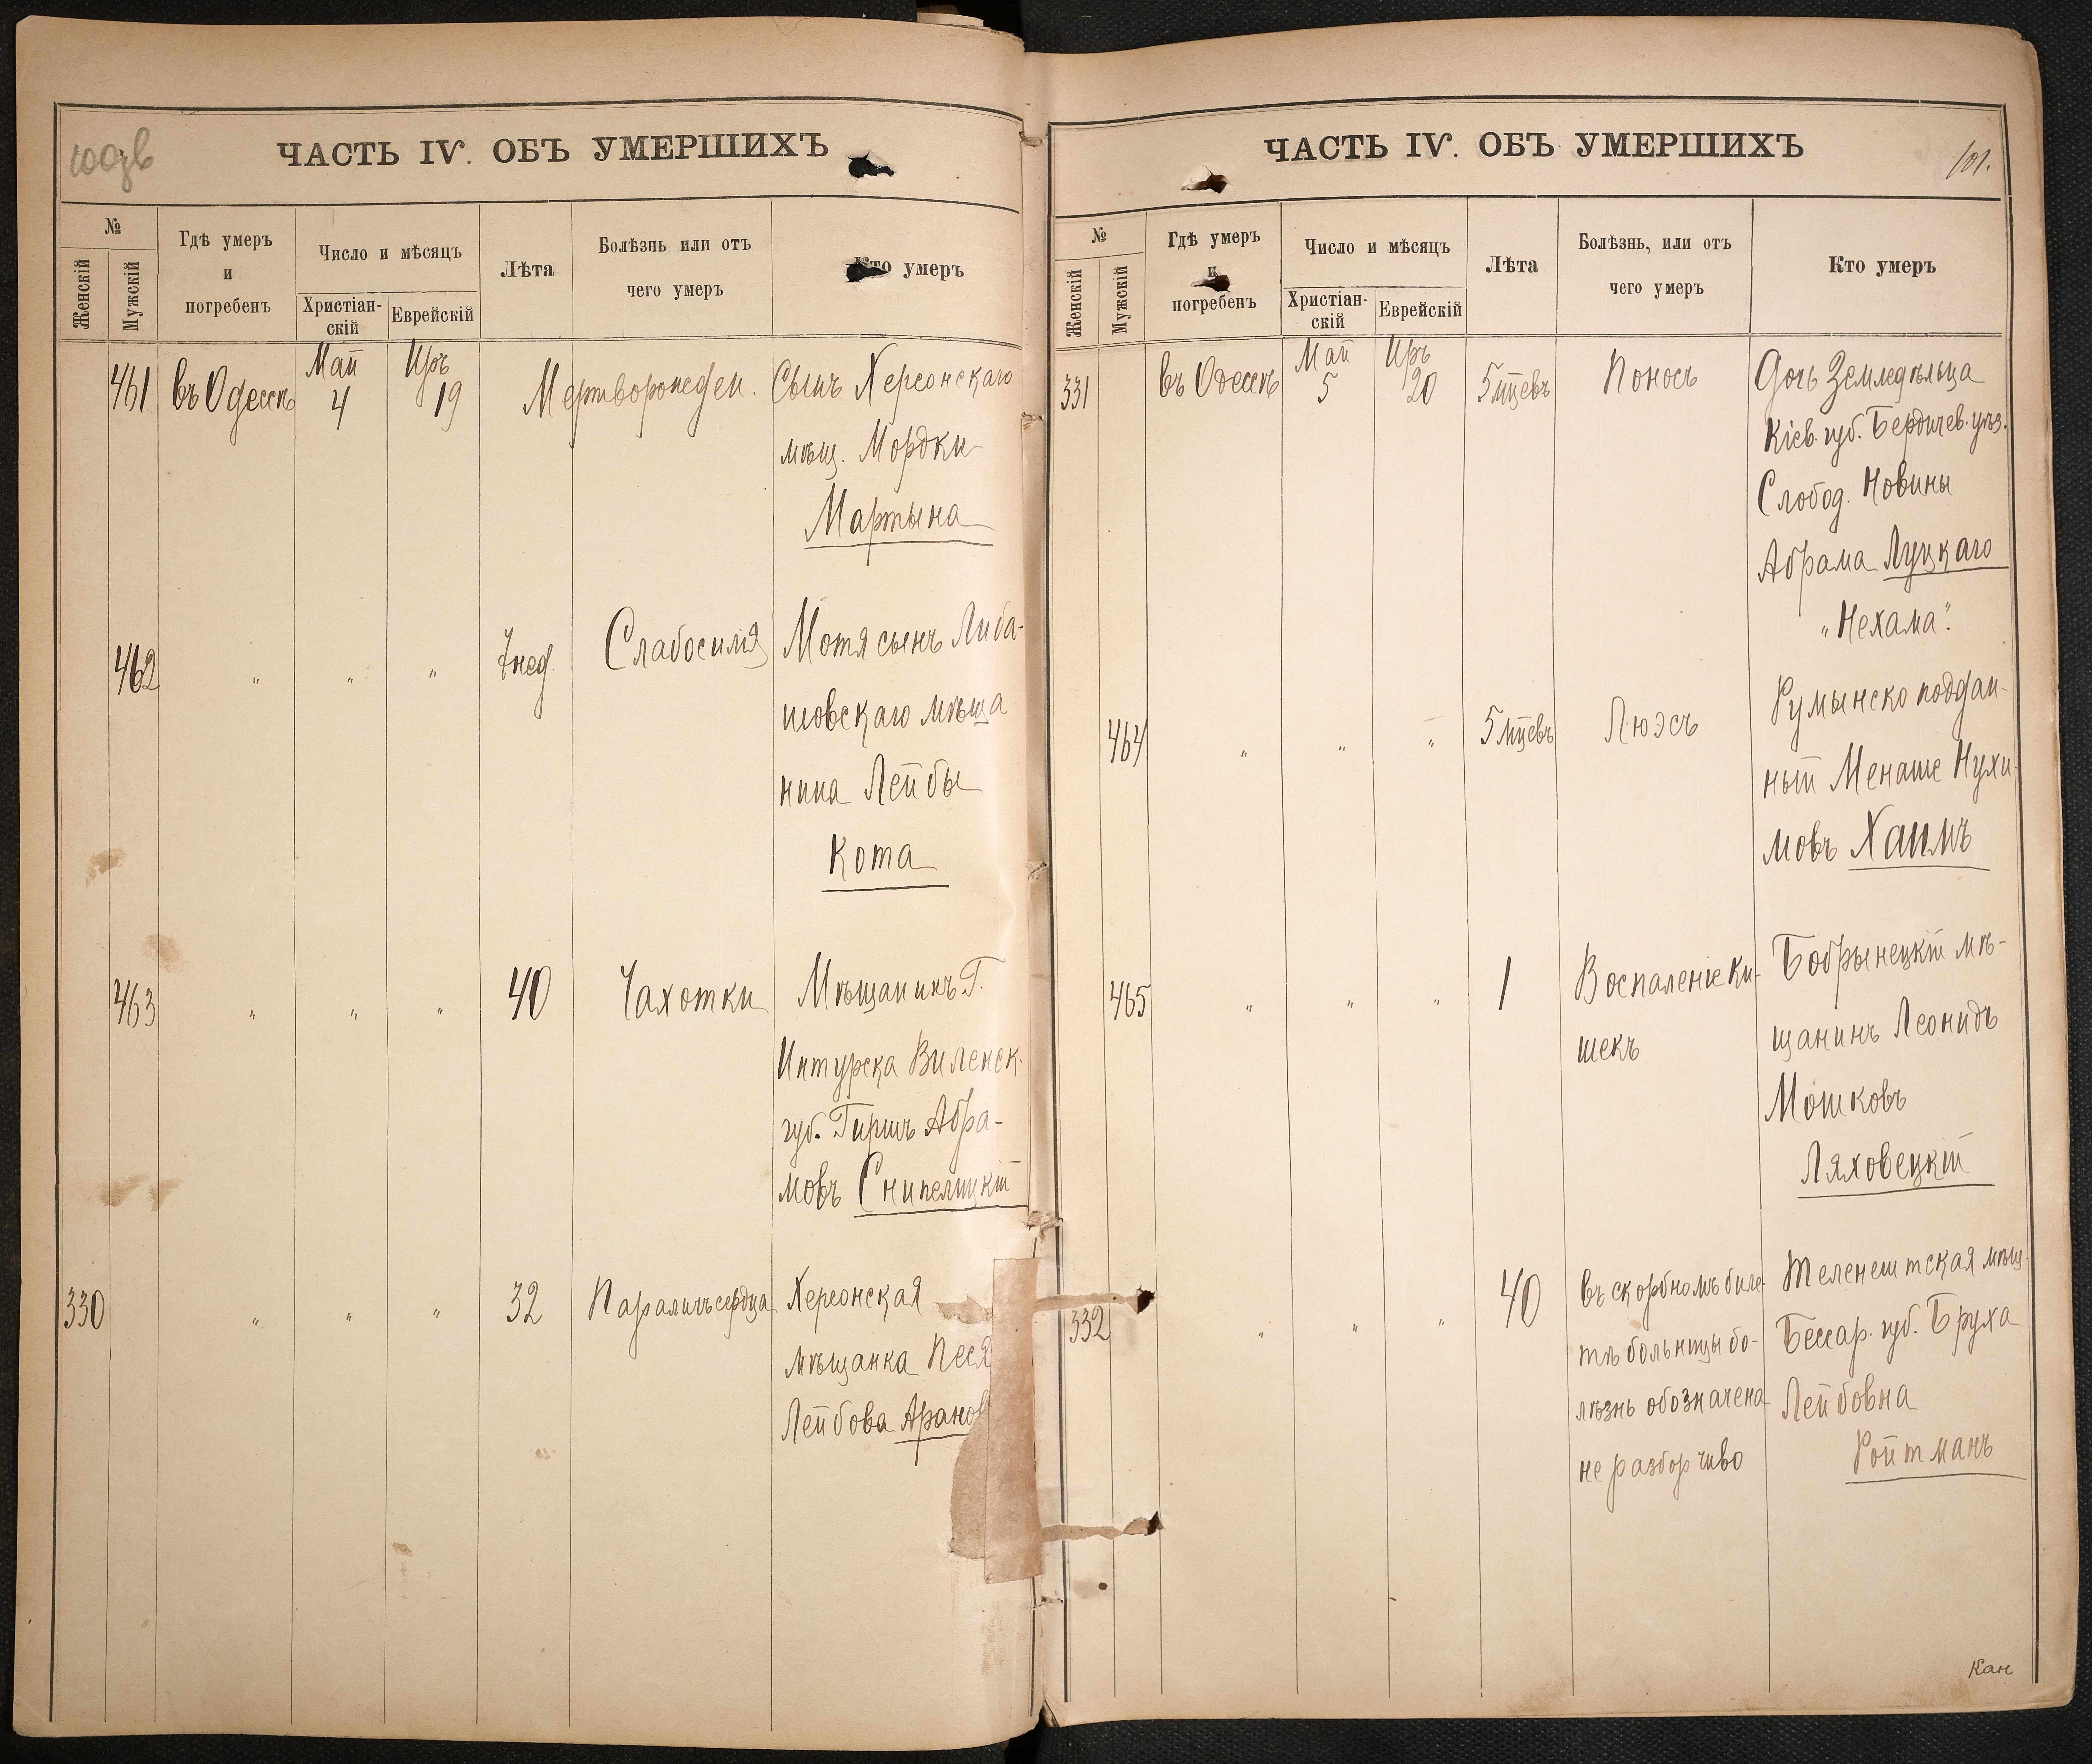 100об
ЧАСТЬ IV. ОБЪ УМЕРШИХЪ
№
Женскій
Мужскій
Гдѣ умеръ
и
погребенъ
Число и мѣсяцъ
Христіан-
скій
Еврейскій
Лѣта
Болѣзнь или отъ
чего умеръ
Кто умеръ
461 въ Одессѣ Май 4 Иръ 19 Мертворожден. Сынъ Херсонскаго
мѣщ. Мордки
Мартына
462 " " " 7 нед. Слабосилія Мотя сынъ Либа-
шовскаго мѣща
нина Лейбы
Кота
463 " " " 40 Чахотки Мѣщанинъ Г.
Интурска Виленск.
губ. Гиршъ Абра-
мовъ Снипелицкій
330 " " " 32 Параличъ сердца Херсонская
мѣщанка Песя
Лейбова Аранов
ЧАСТЬ IV. ОБЪ УМЕРШИХЪ
101.
№
Женскій
Мужскій
Гдѣ умеръ
и
погребенъ
Число и мѣсяцъ
Христіан-
скій
Еврейскій
Лѣта
Болѣзнь, или отъ
чего умеръ
Кто умеръ
331 въ Одессѣ Май 5 Иръ 20 5 мцевъ Поносъ Дочь Земледѣльца
Кіев. губ. Бердичев. уѣз.
Слобод. Новины
Абрама Луцкаго
„Нехама".
464 " " " 5 мцевъ Люэсъ Румынско поддан-
ный Менаше Нухи-
мовъ Хаимъ
465 " " " 1 Воспаленіе Ки- Бобрынецкій мѣ-
шекъ щанинъ Леонидъ
Мошковъ
Ляховецкій
332 " " " 40 въ скорбномъ биле- Теленештская мѣщ.
тѣ больницы бо- Бессар. губ. Бруха
лѣзнь обозначена Лейбовна
не разборчиво Ройтманъ
Кан